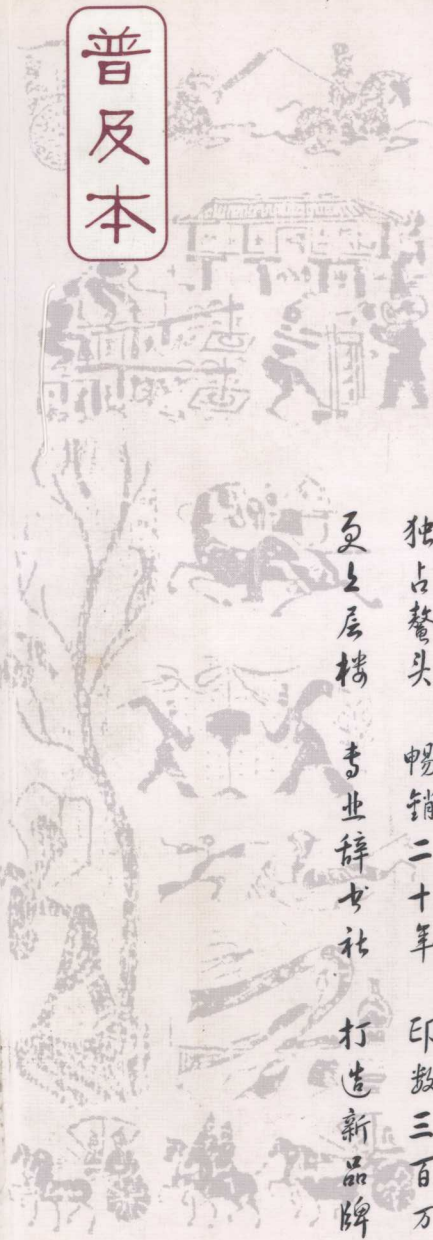 普及本
独占鳌头 畅销二十年 印数三百万
更上层楼 专业辞书社 打造新品牌